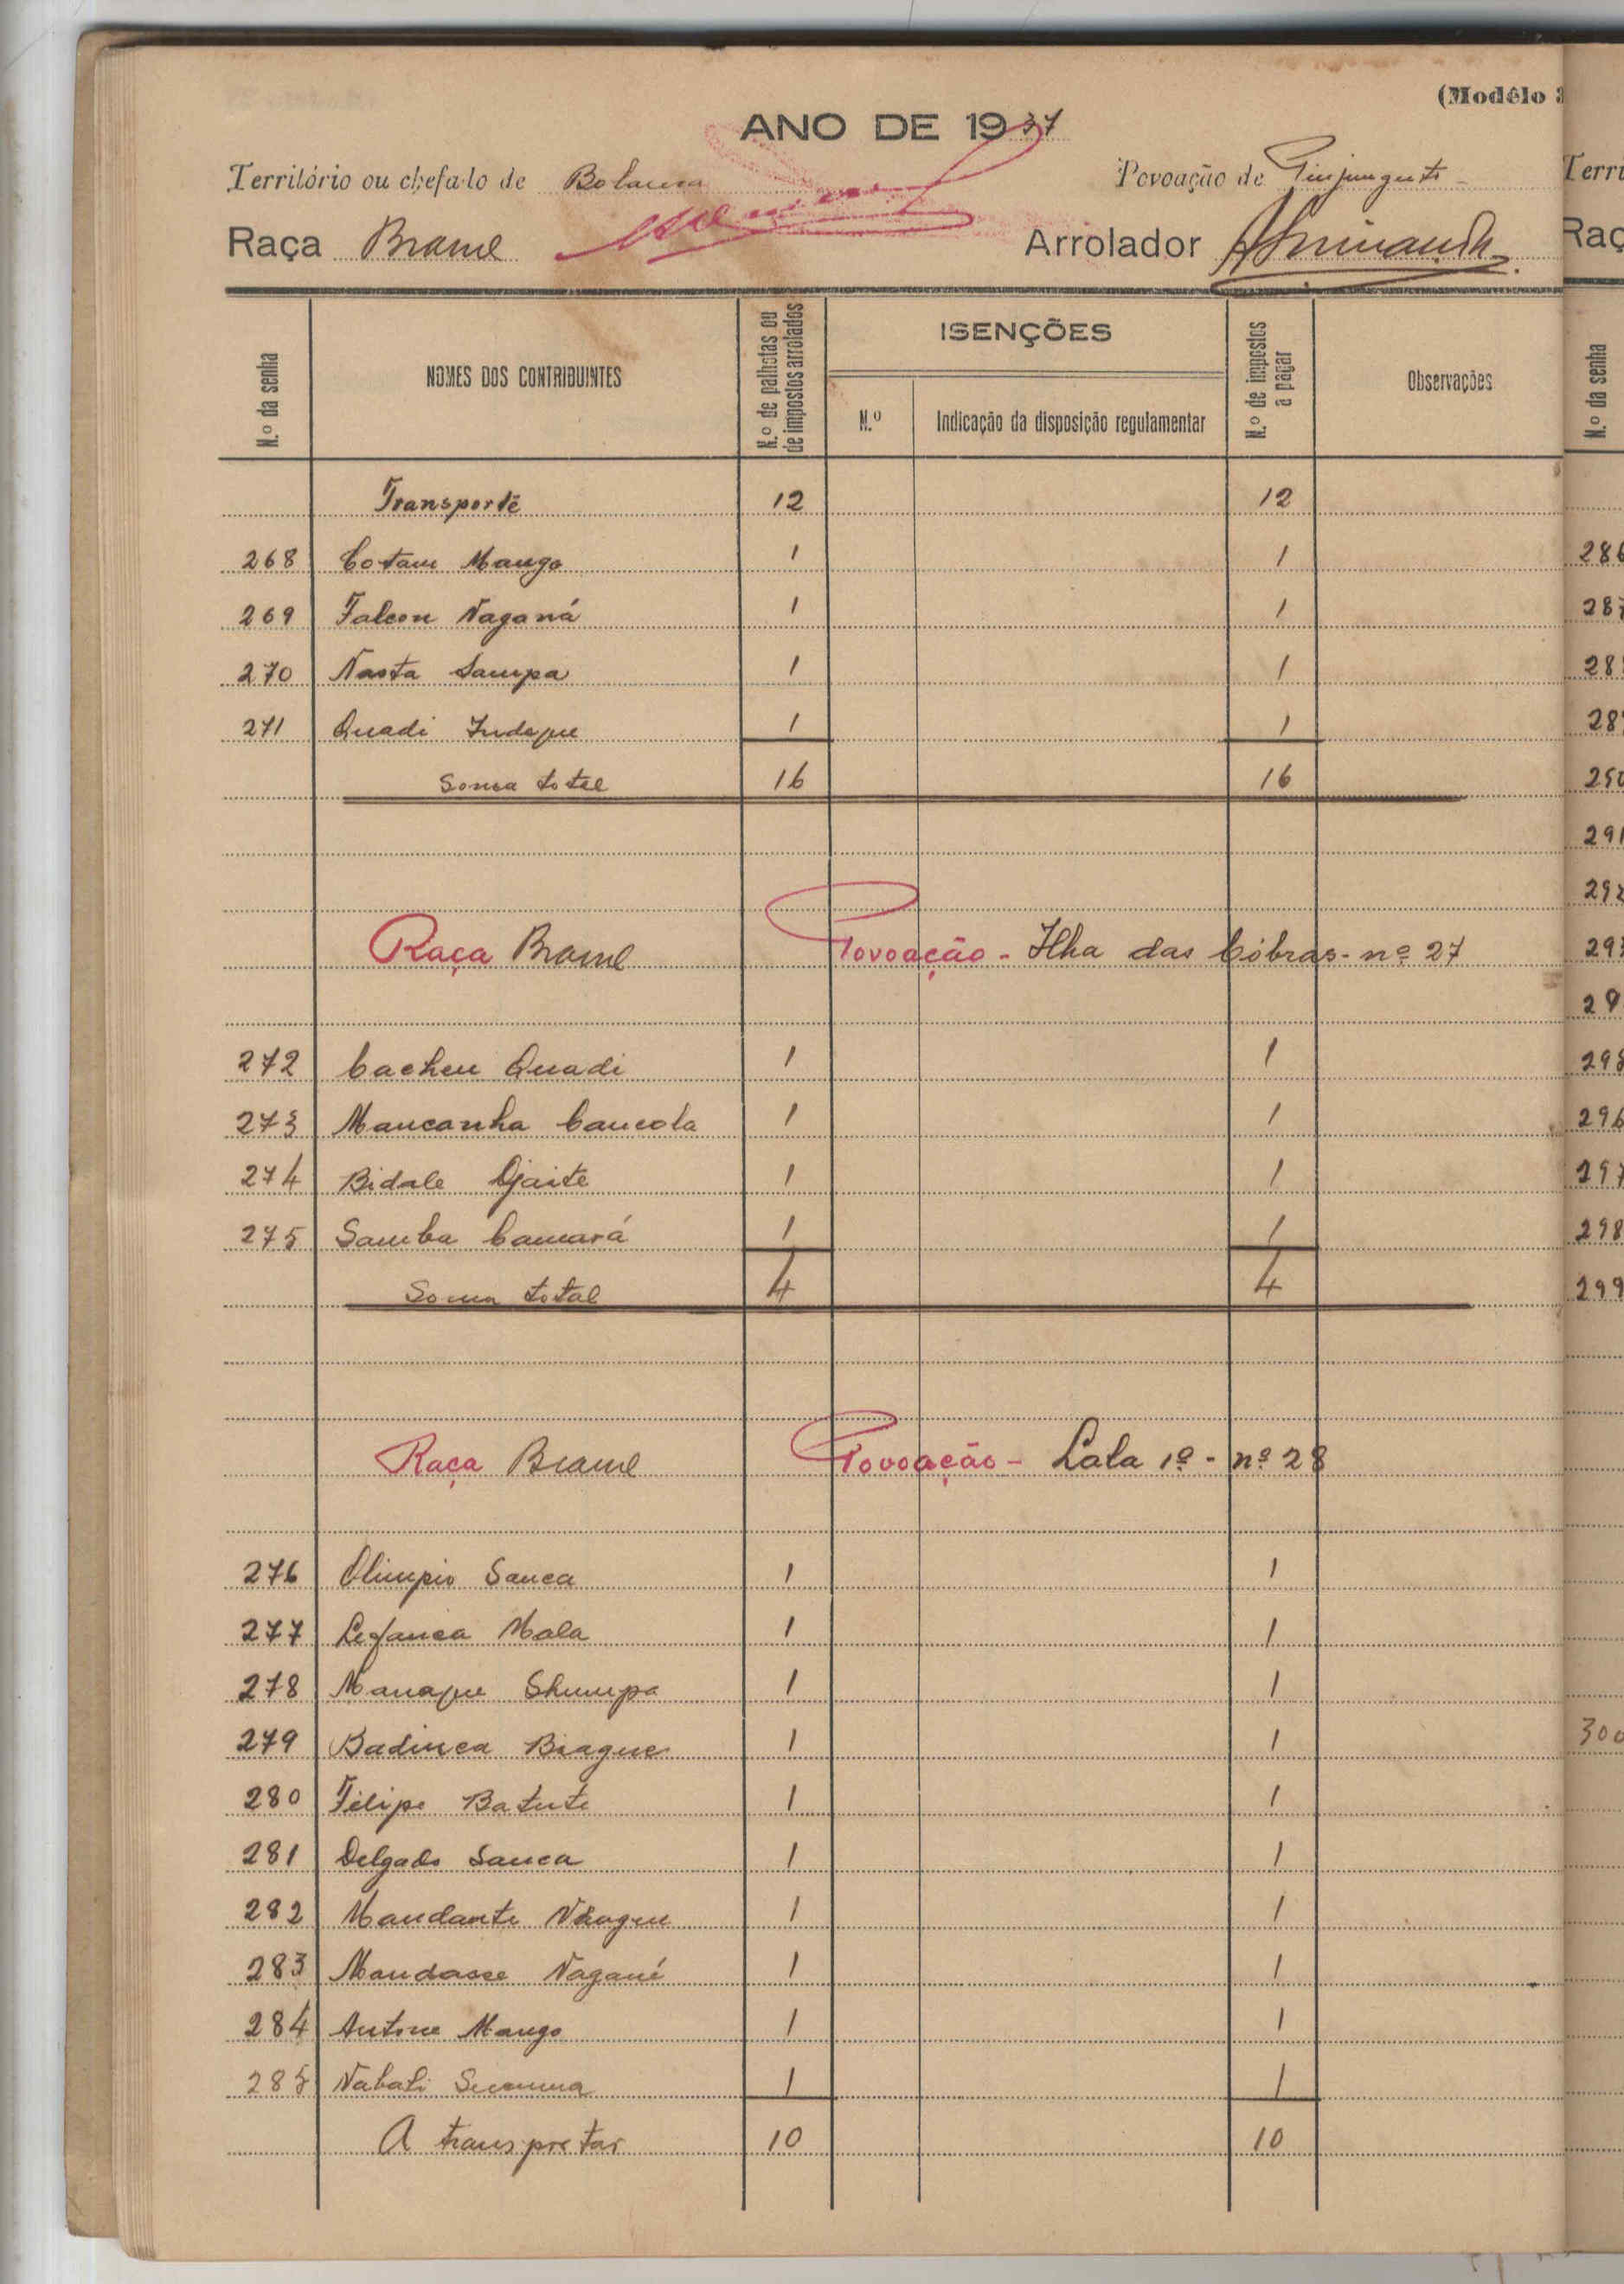 (Modêlo
ANO DE 1937
Território ou chefado de Bolama Povoação de
Raça Brame Arrolador
N.º da senha NOMES DOS CONTRIBUINTES N.º de palhotas ou de impostos arrolados ISENÇÕES N.º Indicação da disposição regulamentar N.º de impostos a pagar Observações
Transporte 12 12
268 Cotam Mango 1 1
269 Falcon Naganá 1 1
270 Nasta Sampa 1 1
271 Quadi Indeque 1 1
Soma total 16 16
Raça Brame Povoação - Ilha das Cóbras - nº 27
272 Cacheu Quadi 1 1
273 Mancanha Cancola 1 1
274 Bidale Djaite 1 1
275 Samba Camará 1 1
Soma total 4 4
Raça Brame Povoação - Lala 1º - nº 28
276 Olimpio Sanca 1 1
277 Mala 1 1
278 1 1
279 Badinca Biague 1 1
280 Felipe Batute 1 1
281 Delgado Sanca 1 1
282 Mandante 1 1
283 Mandasse Nagané 1 1
284 Antone Mango 1 1
285 Nabati 1 1
A transportar 10 10
Terri
Raç
N.º da senha
286
287
28
28
290
291
292
293
29
295
296
297
298
299
300